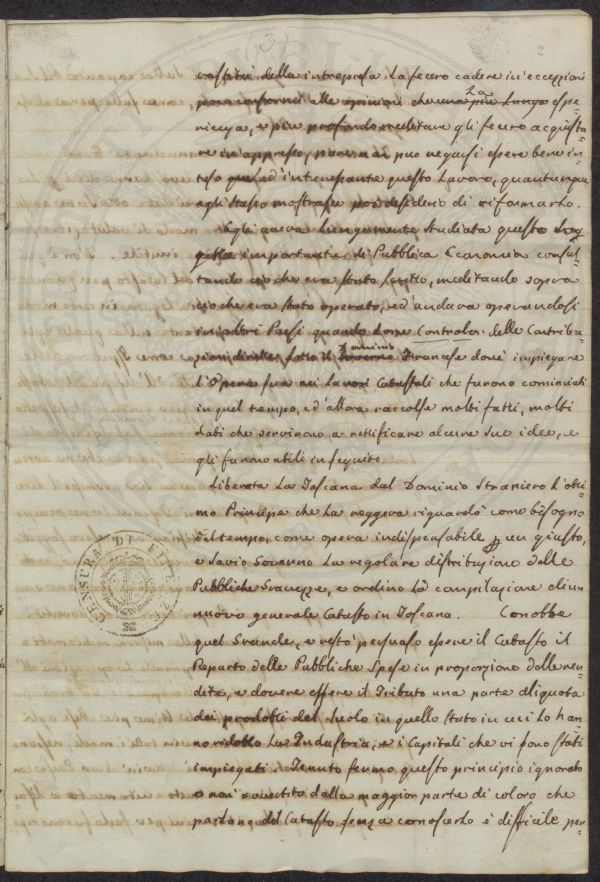 (3)
2
vastità della intrapresa la fecero cadere in'eccezioni
poco conformi alle opinioni che una più lunga La espe-
rienza, e più profondo meditare gli fecero acquista-
re in'appresso, pure non può negarsi essere bene in-
teso ed'interessante questo Lavoro, quantunque
egli stesso mostrasse poi desiderio di riformarlo.
Egli aveva lungamente studiata questo
importante di Pubblica Economia consul-
tando ciò che era stato scritto, meditando sopra
ciò che era stato operato, ed'andava operandosi
in'altri Paesi quando come Controlor. delle Contribu-
zioni dirette sotto il Governo Dominio Francese dové impiegare
l'Opera sua nei Lavori Catastali che furono cominciati
in quel tempo, ed'allora raccolse molti fatti, molti
dati che servirono a rettificare alcune sue idee, e
gli furono utili in seguito.
Liberata La Toscana dal Dominio Straniero L'otti-
mo Principe che La reggeva riguardò come bisogno
del tempo, come opera indispensabile p un giusto,
e Savio Governo La regolare distribuzione delle
Pubbliche Gravezze, e ordinò La compilazione di un
nuovo generale Catasto in Toscana. Conobbe
quel Grande, e restò persuaso essere il Catasto il
Reparto delle Pubbliche Spese in proporzione delle ren-
dite, e dovere essere il Tributo una parte aliquota
dei prodotti del Suolo in quello stato in cui Lo han-
no ridotto La Industria, e i Capitali che vi sono stati
impiegati. Tenuto fermo questo principio ignorato
o non avvertito dalla maggior parte di coloro che
parlano del Catasto senza conoscerlo è difficile per-
CENSURA DI FIRENZE